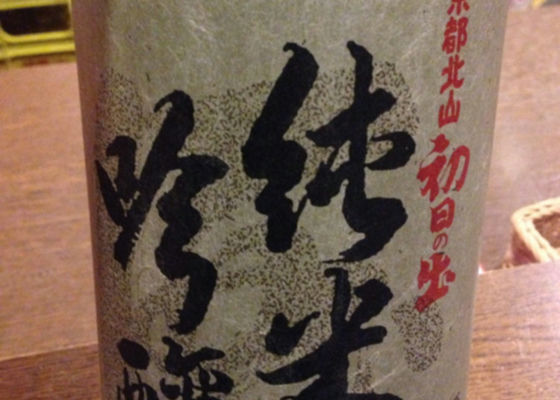 京都北山 初日の出
純米
吟醸